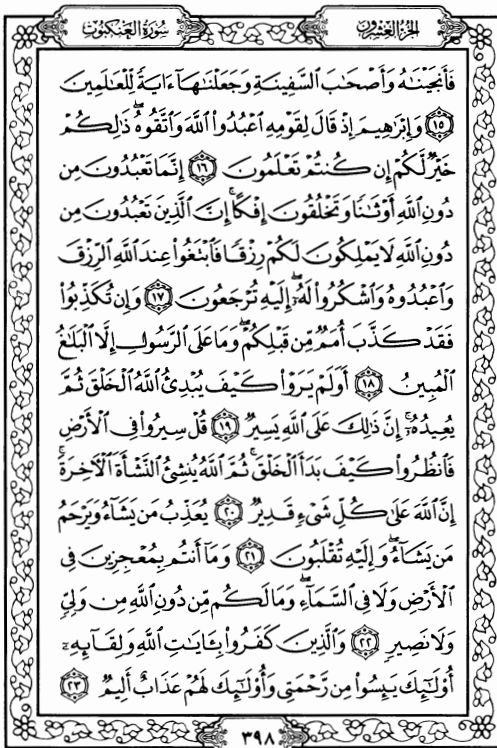 سُورَةُ العَنكَبُوتِ الجُزْءُ العِشْرُونَ
فَأَنجَيْنَٰهُ وَأَصْحَٰبَ ٱلسَّفِينَةِ وَجَعَلْنَٰهَآ ءَايَةً لِّلْعَٰلَمِينَ
١٥ وَإِبْرَٰهِيمَ إِذْ قَالَ لِقَوْمِهِ ٱعْبُدُوا۟ ٱللَّهَ وَٱتَّقُوهُ ۖ ذَٰلِكُمْ
خَيْرٌ لَّكُمْ إِن كُنتُمْ تَعْلَمُونَ ١٦ إِنَّمَا تَعْبُدُونَ مِن
دُونِ ٱللَّهِ أَوْثَٰنًا وَتَخْلُقُونَ إِفْكًا ۚ إِنَّ ٱلَّذِينَ تَعْبُدُونَ مِن
دُونِ ٱللَّهِ لَا يَمْلِكُونَ لَكُمْ رِزْقًا فَٱبْتَغُوا۟ عِندَ ٱللَّهِ ٱلرِّزْقَ
وَٱعْبُدُوهُ وَٱشْكُرُوا۟ لَهُۥٓ ۖ إِلَيْهِ تُرْجَعُونَ ١٧ وَإِن تُكَذِّبُوا۟
فَقَدْ كَذَّبَ أُمَمٌ مِّن قَبْلِكُمْ ۖ وَمَا عَلَى ٱلرَّسُولِ إِلَّا ٱلْبَلَٰغُ
ٱلْمُبِينُ ١٨ أَوَلَمْ يَرَوْا۟ كَيْفَ يُبْدِئُ ٱللَّهُ ٱلْخَلْقَ ثُمَّ
يُعِيدُهُۥٓ ۚ إِنَّ ذَٰلِكَ عَلَى ٱللَّهِ يَسِيرٌ ١٩ قُلْ سِيرُوا۟ فِى ٱلْأَرْضِ
فَٱنظُرُوا۟ كَيْفَ بَدَأَ ٱلْخَلْقَ ۚ ثُمَّ ٱللَّهُ يُنشِئُ ٱلنَّشْأَةَ ٱلْـَٔاخِرَةَ ۚ
إِنَّ ٱللَّهَ عَلَىٰ كُلِّ شَىْءٍ قَدِيرٌ ٢٠ يُعَذِّبُ مَن يَشَآءُ وَيَرْحَمُ
مَن يَشَآءُ ۖ وَإِلَيْهِ تُقْلَبُونَ ٢١ وَمَآ أَنتُم بِمُعْجِزِينَ فِى
ٱلْأَرْضِ وَلَا فِى ٱلسَّمَآءِ ۖ وَمَا لَكُم مِّن دُونِ ٱللَّهِ مِن وَلِىٍّ
وَلَا نَصِيرٍ ٢٢ وَٱلَّذِينَ كَفَرُوا۟ بِـَٔايَٰتِ ٱللَّهِ وَلِقَآئِهِۦٓ
أُو۟لَٰٓئِكَ يَئِسُوا۟ مِن رَّحْمَتِى وَأُو۟لَٰٓئِكَ لَهُمْ عَذَابٌ أَلِيمٌ ٢٣
٣٩٨